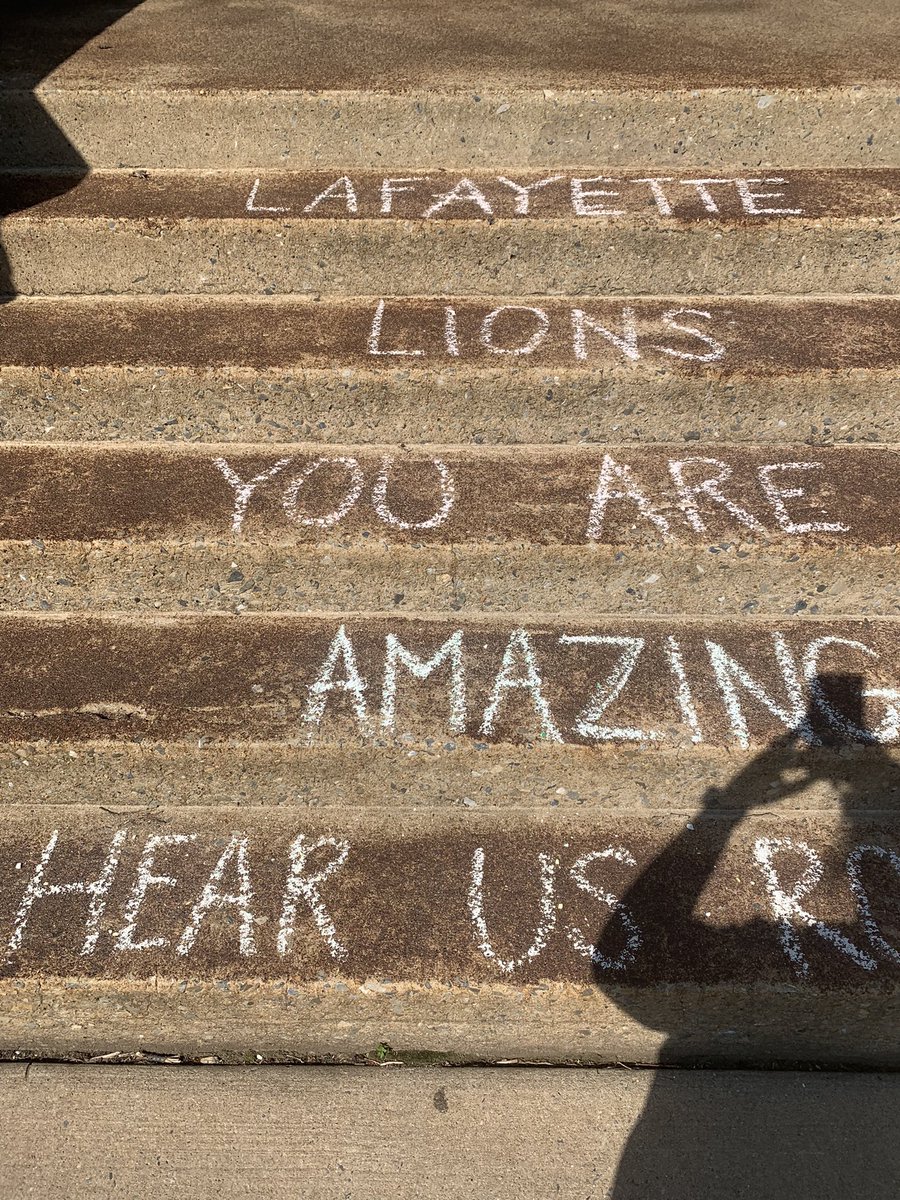 LAFAYETTE
LIONS
YOU ARE
AMAZING
HEAR US